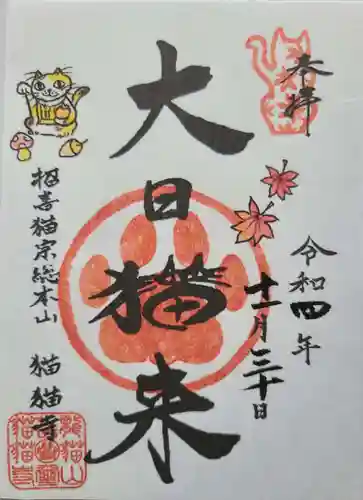 奉拝
令和四年
十一月三十日
大日猫来
招喜猫宗総本山
猫猫寺